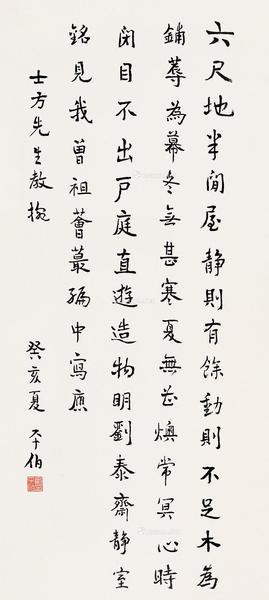 六尺地半閒屋静則有餘動則不足木為
鋪蓐為幕冬無甚寒夏無燠常冥心時
閉目不出戶庭直遊造物明劉泰齋静室
銘見我曾祖薈蕞編中寫應
士方先生教
癸亥夏 平伯